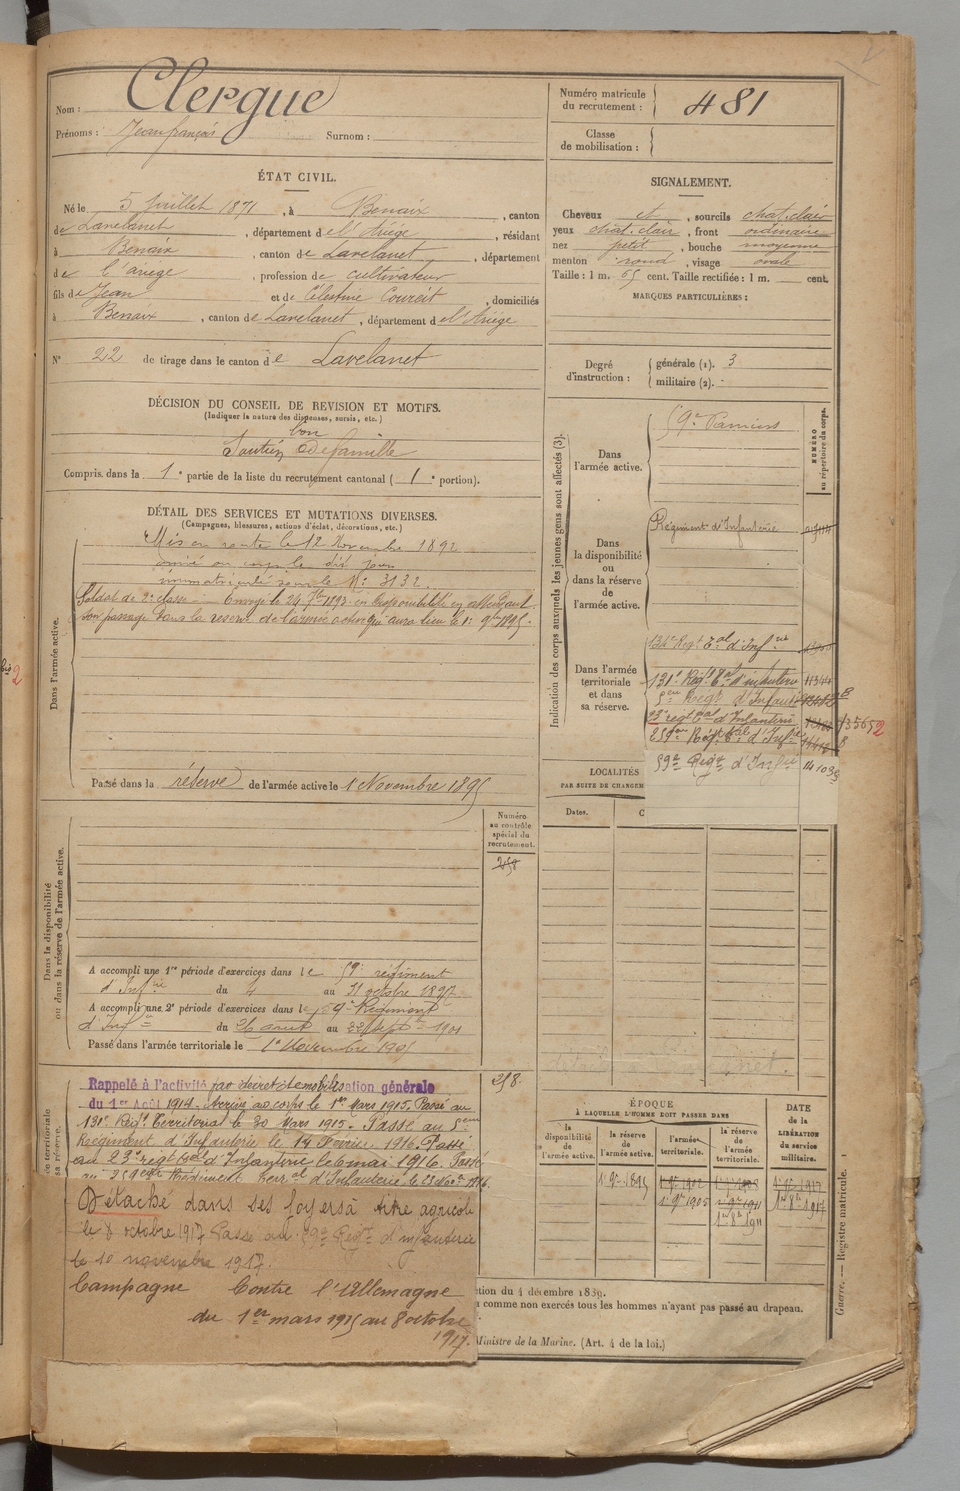 Nom : Clergue
Prénoms : Jean françois Surnom :
Numéro matricule
du recrutement : 481
Classe
de mobilisation :
ÉTAT CIVIL.
Né le 5 Juillet 1871, à Benaix, canton
de Lavelanet, département de l'Ariège, résidant
à Benaix, canton de Lavelanet, département
de L'ariege, profession de cultivateur
fils de Jean et de Célestine Courcit, domiciliés
à Benaix, canton de Lavelanet, département de l'Ariège
N° 22 de tirage dans le canton de Lavelanet
SIGNALEMENT.
Cheveux et, sourcils chat. clair
yeux chat. clair, front ordinaire
nez petit, bouche moyenne
menton rond, visage ovale
Taille : 1 m. 65 cent. Taille rectifiée : 1 m. cent.
MARQUES PARTICULIÈRES :
Degré
d'instruction :
générale (1). 3
militaire (2).
DÉCISION DU CONSEIL DE REVISION ET MOTIFS.
(Indiquer la nature des dispenses, sursis, etc.)
bon
Soutien De famille
Compris dans la 1e partie de la liste du recrutement cantonal (1e portion).
DÉTAIL DES SERVICES ET MUTATIONS DIVERSES.
(Campagnes, blessures, actions d'éclat, décorations, etc.)
Dans l'armée active.
Mis en route le 12 Novembre 1892
arrivé au corps le dit jour
immatriculé sous le N° 3132.
Soldat de 2e classe Envoyé le 24 7bre 1893 en disponibilité en attendant
son passage dans la réserve de l'armée active qui aura lieu le 1er 9bre 1895.
Passé dans la réserve de l'armée active le 1 Novembre 1895
Indication des corps auxquels les jeunes gens sont affectés (3).
NUMÉRO
au répertoire du corps.
Dans
l'armée active.
59e Pamiers
Dans
la disponibilité
ou
dans la réserve
de
l'armée active.
Régiment d'Infanterie
Dans l'armée
territoriale
et dans
sa réserve.
134e Regt Tal d'Infrie
131e Regt Tal d'infanterie 11344
5eme Regt d'Infanterie
23e regt Tal d'Infanterie 35652
259eme Regt Tal d'Infrie
59e Regt d'Infrie
LOCALITÉS
PAR SUITE DE CHANGEM
Dates.
C
Dans la disponibilité
ou dans la réserve de l'armée active.
Numéro
au contrôle
spécial du
recrutement.
258
A accompli une 1re période d'exercices dans le 59e régiment
d'Infrie du 4 au 31 octobre 1897
A accompli une 2e période d'exercices dans le 59e Régiment
d'Infie du 26 aout au 22 Sept 1901
Passé dans l'armée territoriale le 1er Novembre 1905
258.
Rappelé à l'activité par décret de mobilisation générale
du 1er Août 1914. Arrivé au corps le 1er Mars 1915. Passé au
131e Regt Territorial le 30 Mars 1915. Passé au 5eme
Régiment d'Infanterie le 14 Février 1916. Passé
au 23e regt tal d'Infanterie le 6 mai 1916. Passé
au 259eme Régiment Terral d'Infanterie le 25 Nov 1916.
Détaché dans ses foyers à titre agricole
le 8 octobre 1917 Passé au 59e Regt d'infanterie
le 10 novembre 1917.
Campagne Contre l'Allemagne
du 1er mars 1915 au 8 octobre
1917.
ÉPOQUE
À LAQUELLE L'HOMME DOIT PASSER DANS
la
disponibilité
de
l'armée active.
la réserve
de
l'armée active.
l'armée
territoriale.
la réserve
de
l'armée
territoriale.
DATE
de la
LIBÉRATION
du service
militaire.
1er 9bre 1895
1er 9bre 1905
1er 9bre 1911
1er 8bre 1911
1er 8bre 1917
ction du 4 décembre 1839.
comme non exercés tous les hommes n'ayant pas passé au drapeau.
Ministre de la Marine. (Art. 4 de la loi.)
Guerre. — Registre matricule. 1